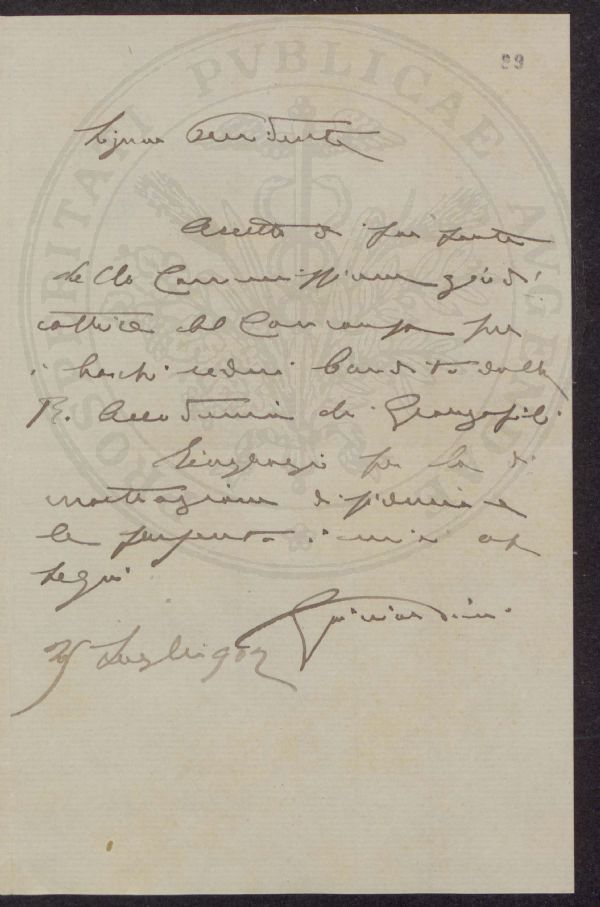 99
PROSPERITATI PVBLICAE AVGENDAE
Signor Presidente
Accetto di far parte
della Commissione giudi
catrice del Concorso per
i boschi cedui bandito dalla
R. Accademia dei Georgofili.
Ringrazio per la di
mostrazione di stima e
le presento i miei os
sequi
Guicciardini
25 Luglio 902